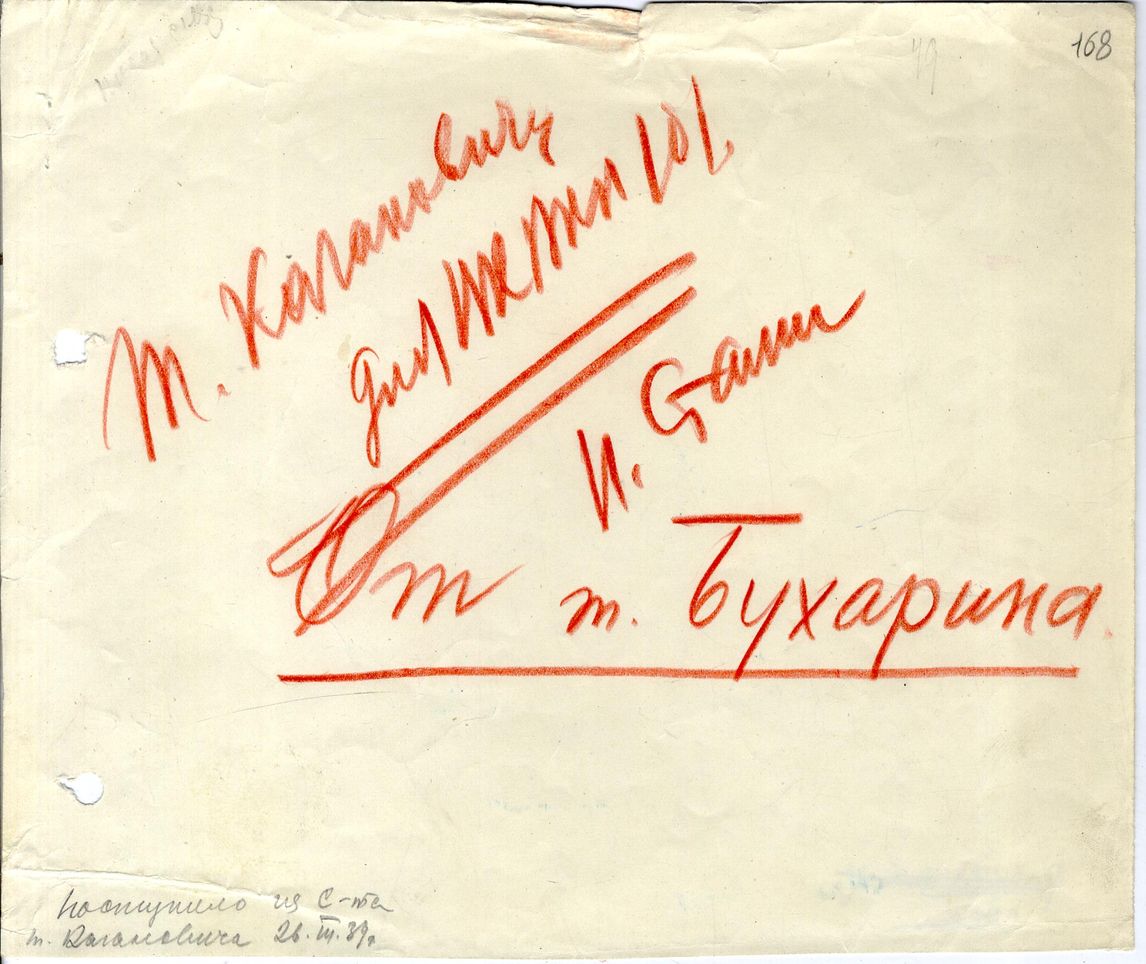 168
49
т. Кагановичу
для
И. Сталин
От т. Бухарина
Поступило из С-та
т. Кагановича 26.III.39г.